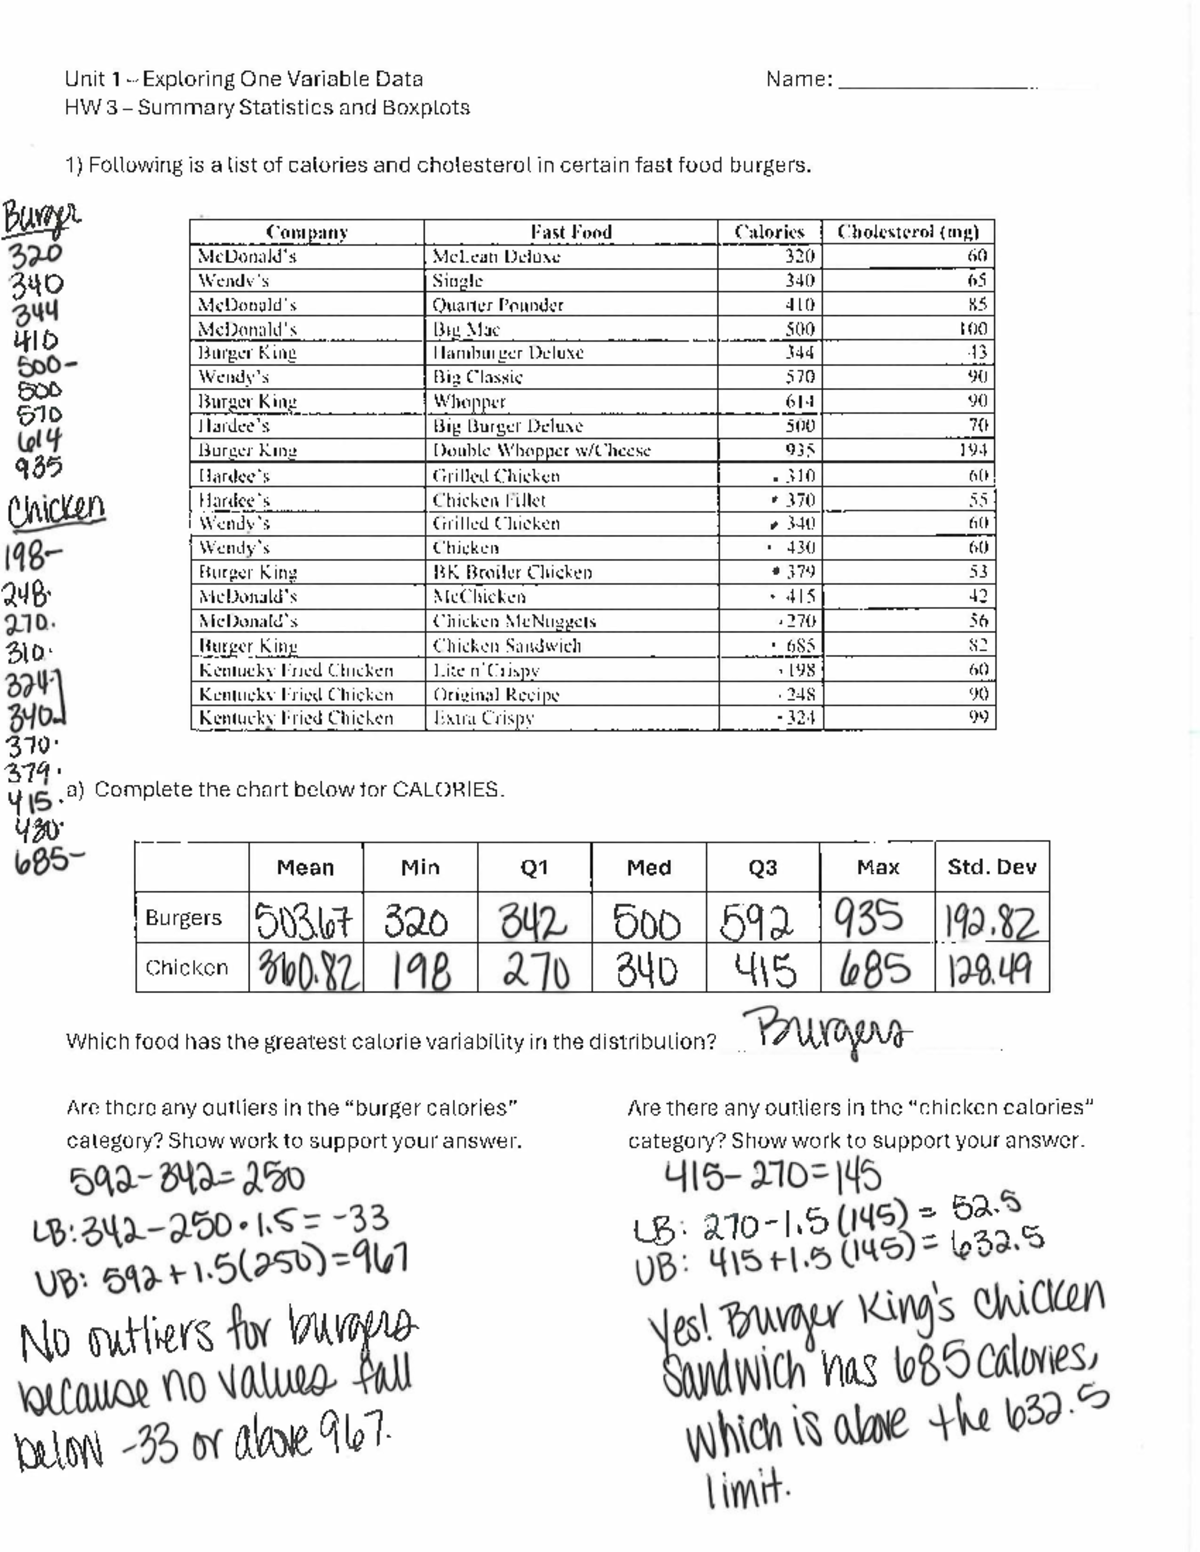 Unit 1 – Exploring One Variable Data Name: ____________________
HW 3 – Summary Statistics and Boxplots
1) Following is a list of calories and cholesterol in certain fast food burgers.
Burger
320
340
344
410
500-
500
570
614
935
Chicken
198-
248.
270.
310.
324.
340.
370.
379.
415.
430.
685-
Company Fast Food Calories Cholesterol (mg)
McDonald's McLean Deluxe 320 60
Wendy's Single 340 65
McDonald's Quarter Pounder 410 85
McDonald's Big Mac 500 100
Burger King Hamburger Deluxe 344 43
Wendy's Big Classic 570 90
Burger King Whopper 614 90
Hardee's Big Burger Deluxe 500 70
Burger King Double Whopper w/Cheese 935 194
Hardee's Grilled Chicken 310 60
Hardee's Chicken Fillet 370 55
Wendy's Grilled Chicken 340 60
Wendy's Chicken 430 60
Burger King BK Broiler Chicken 379 53
McDonald's McChicken 415 42
McDonald's Chicken McNuggets 270 56
Burger King Chicken Sandwich 685 82
Kentucky Fried Chicken Lite n' Crispy 198 60
Kentucky Fried Chicken Original Recipe 248 90
Kentucky Fried Chicken Extra Crispy 324 99
a) Complete the chart below for CALORIES.
Mean Min Q1 Med Q3 Max Std. Dev
Burgers 503.67 320 342 500 592 935 192.82
Chicken 360.82 198 270 340 415 685 128.49
Which food has the greatest calorie variability in the distribution? Burgers
Are there any outliers in the “burger calories”
category? Show work to support your answer.
592-342=250
LB: 342-250•1.5=-33
UB: 592+1.5(250)=967
No outliers for burgers
because no values fall
below -33 or above 967.
Are there any outliers in the “chicken calories”
category? Show work to support your answer.
415-270=145
LB: 270-1.5(145)= 52.5
UB: 415+1.5(145)= 632.5
Yes! Burger King's chicken
Sandwich has 685 calories,
which is above the 632.5
limit.